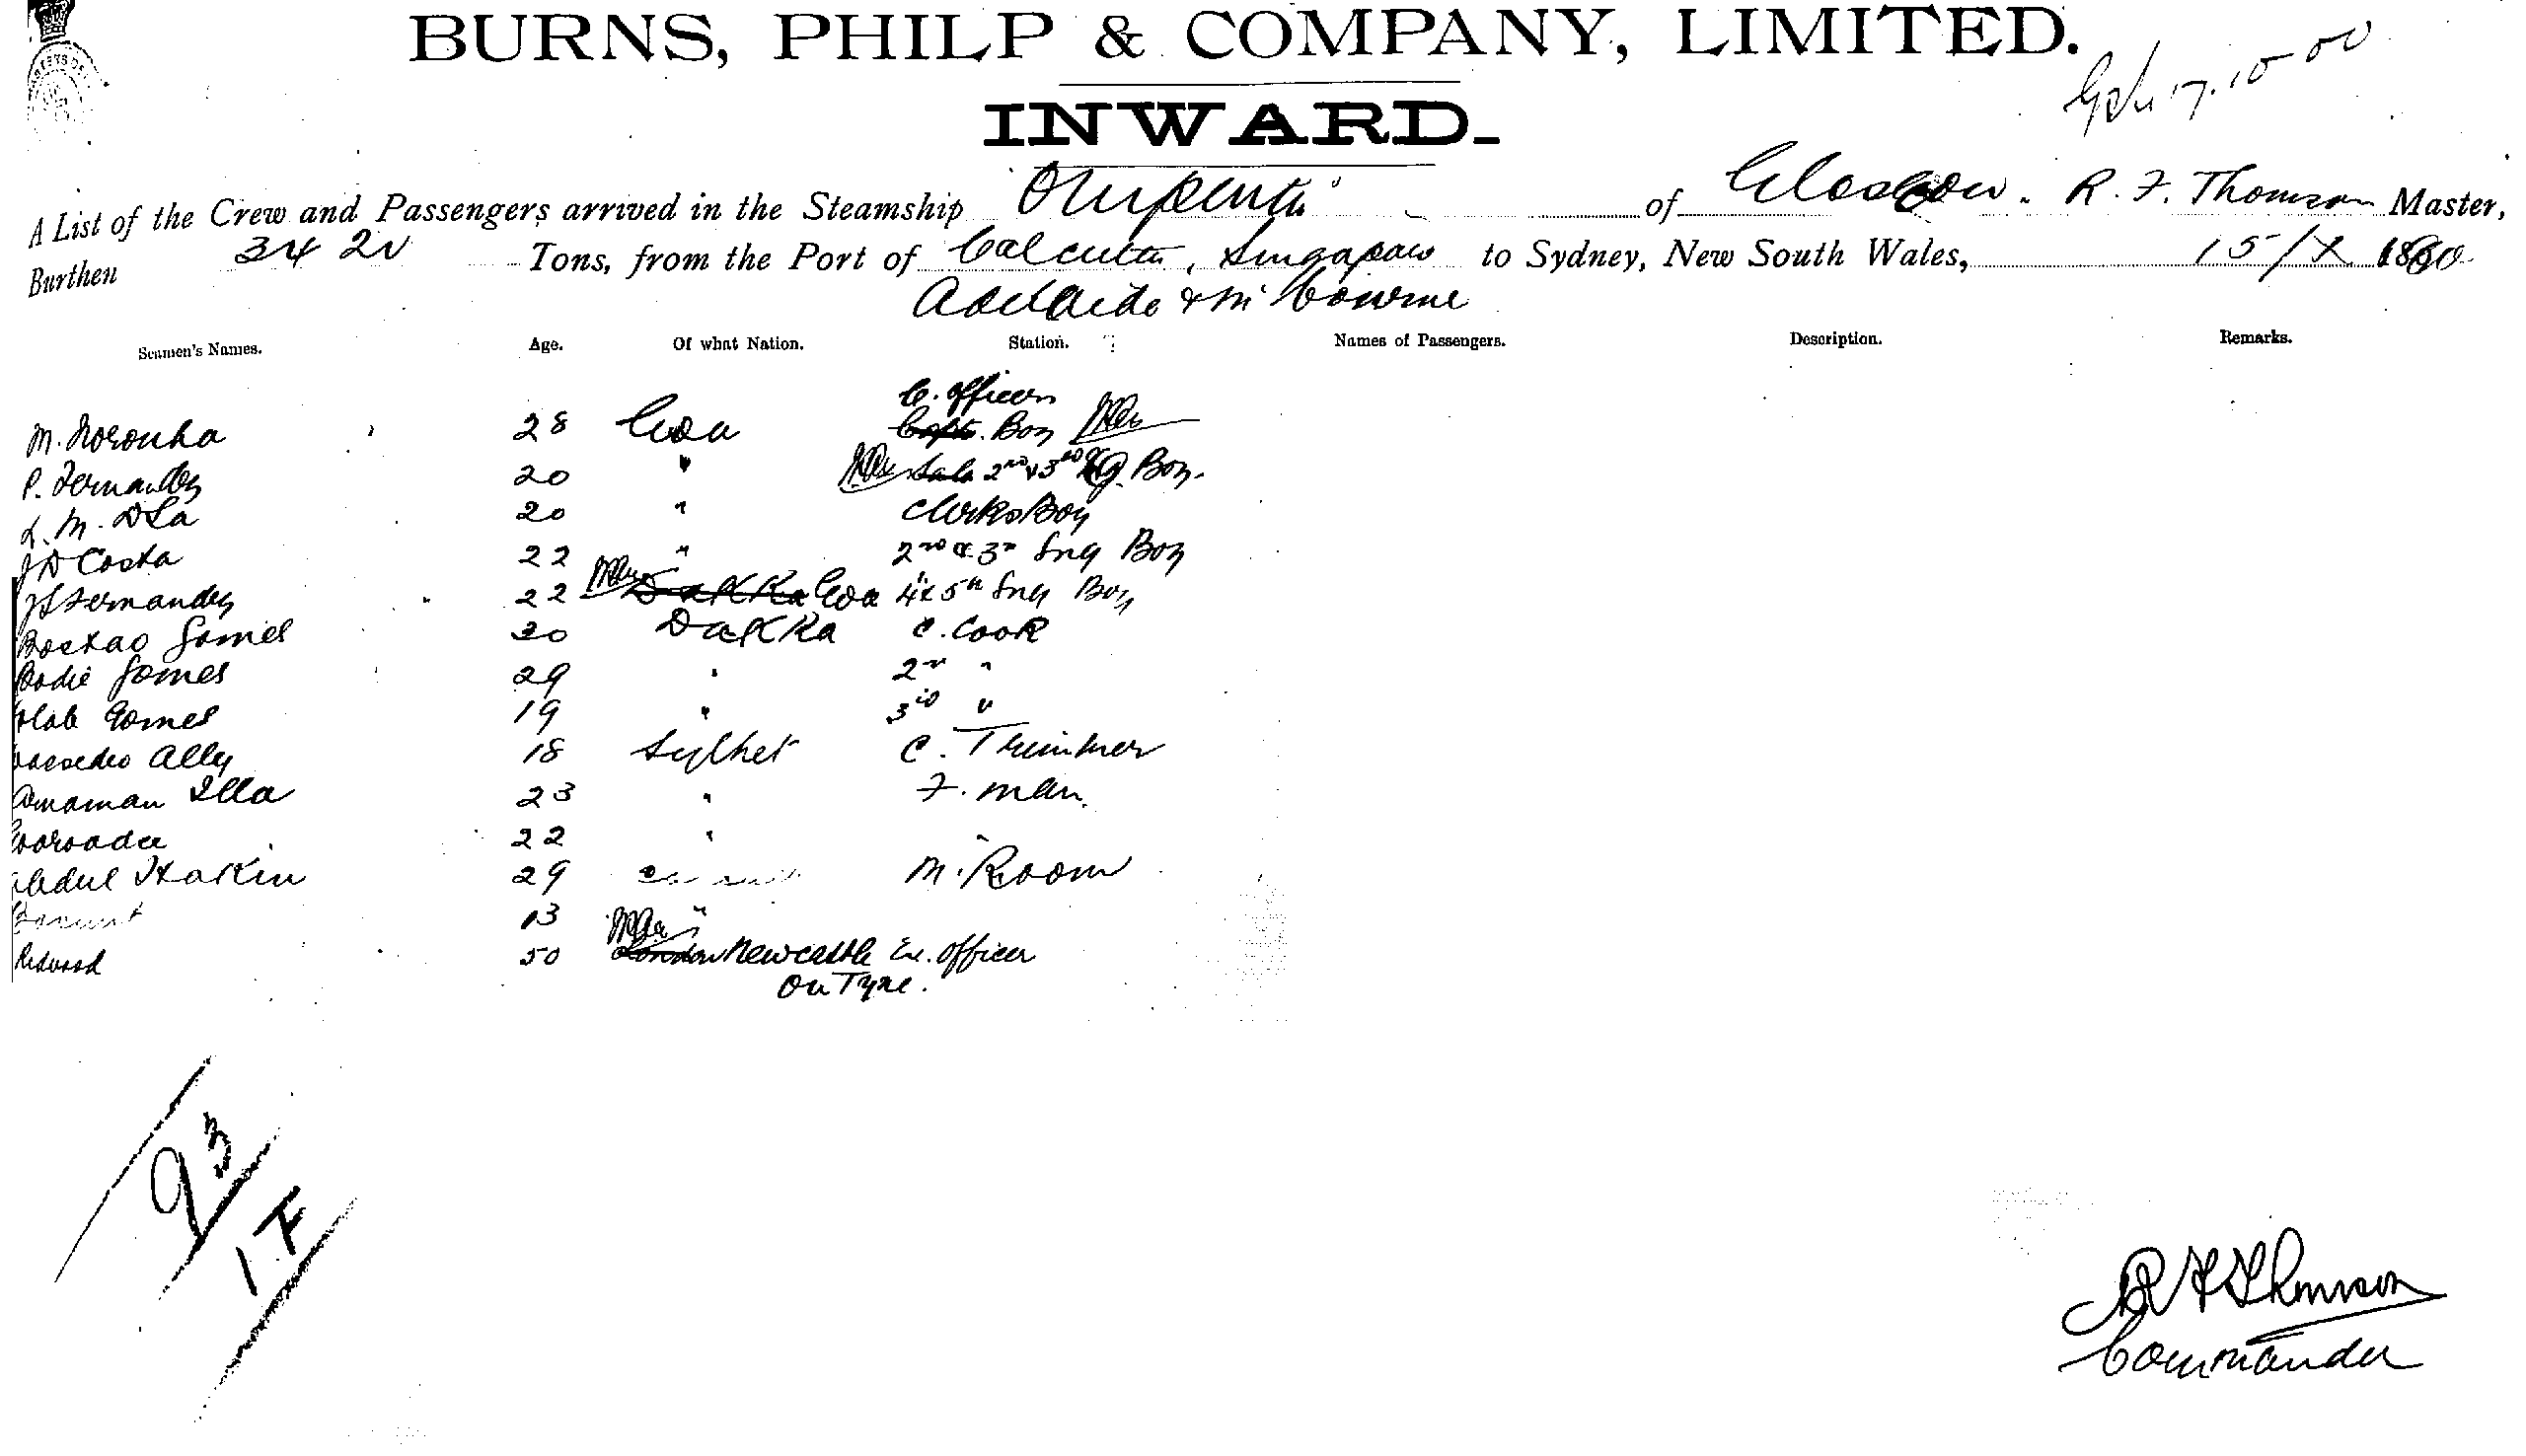 BURNS, PHILP & COMPANY, LIMITED.
17.10.00
INWARD.
A List of the Crew and Passengers arrived in the Steamship of Glasgow. R. F. Thomson Master,
Burthen 3420 Tons, from the Port of Calcutta, Singapaw to Sydney, New South Wales, 15/X 1900
Adelaide & Melbourne
Seamen's Names. Age. Of what Nation. Station. Names of Passengers. Description. Remarks.
C. Officers
M. Noronha 28 Goa Capt. Boy
P. Fernandez 20 " 2nd & 3rd Boy.
L. M. DSa 20 " Clerks Boy
J D Costa 22 " 2nd & 3rd Eng Boy
Fernandez 22 Dakka Goa 4 & 5th Eng Boy
Bostao Gomes 20 Dakka C. Cook
Gomes 29 " 2nd "
Gomes 19 " 3rd "
Ally 18 Sylhet C. Trimmer
Amaman Illa 23 " F. man.
22 " "
Abdul Hakin 29 M. Room
13 "
Redwood 50 London Newcastle Ex. Officer
On Tyne.
93
1F
R F Thomson
Commander